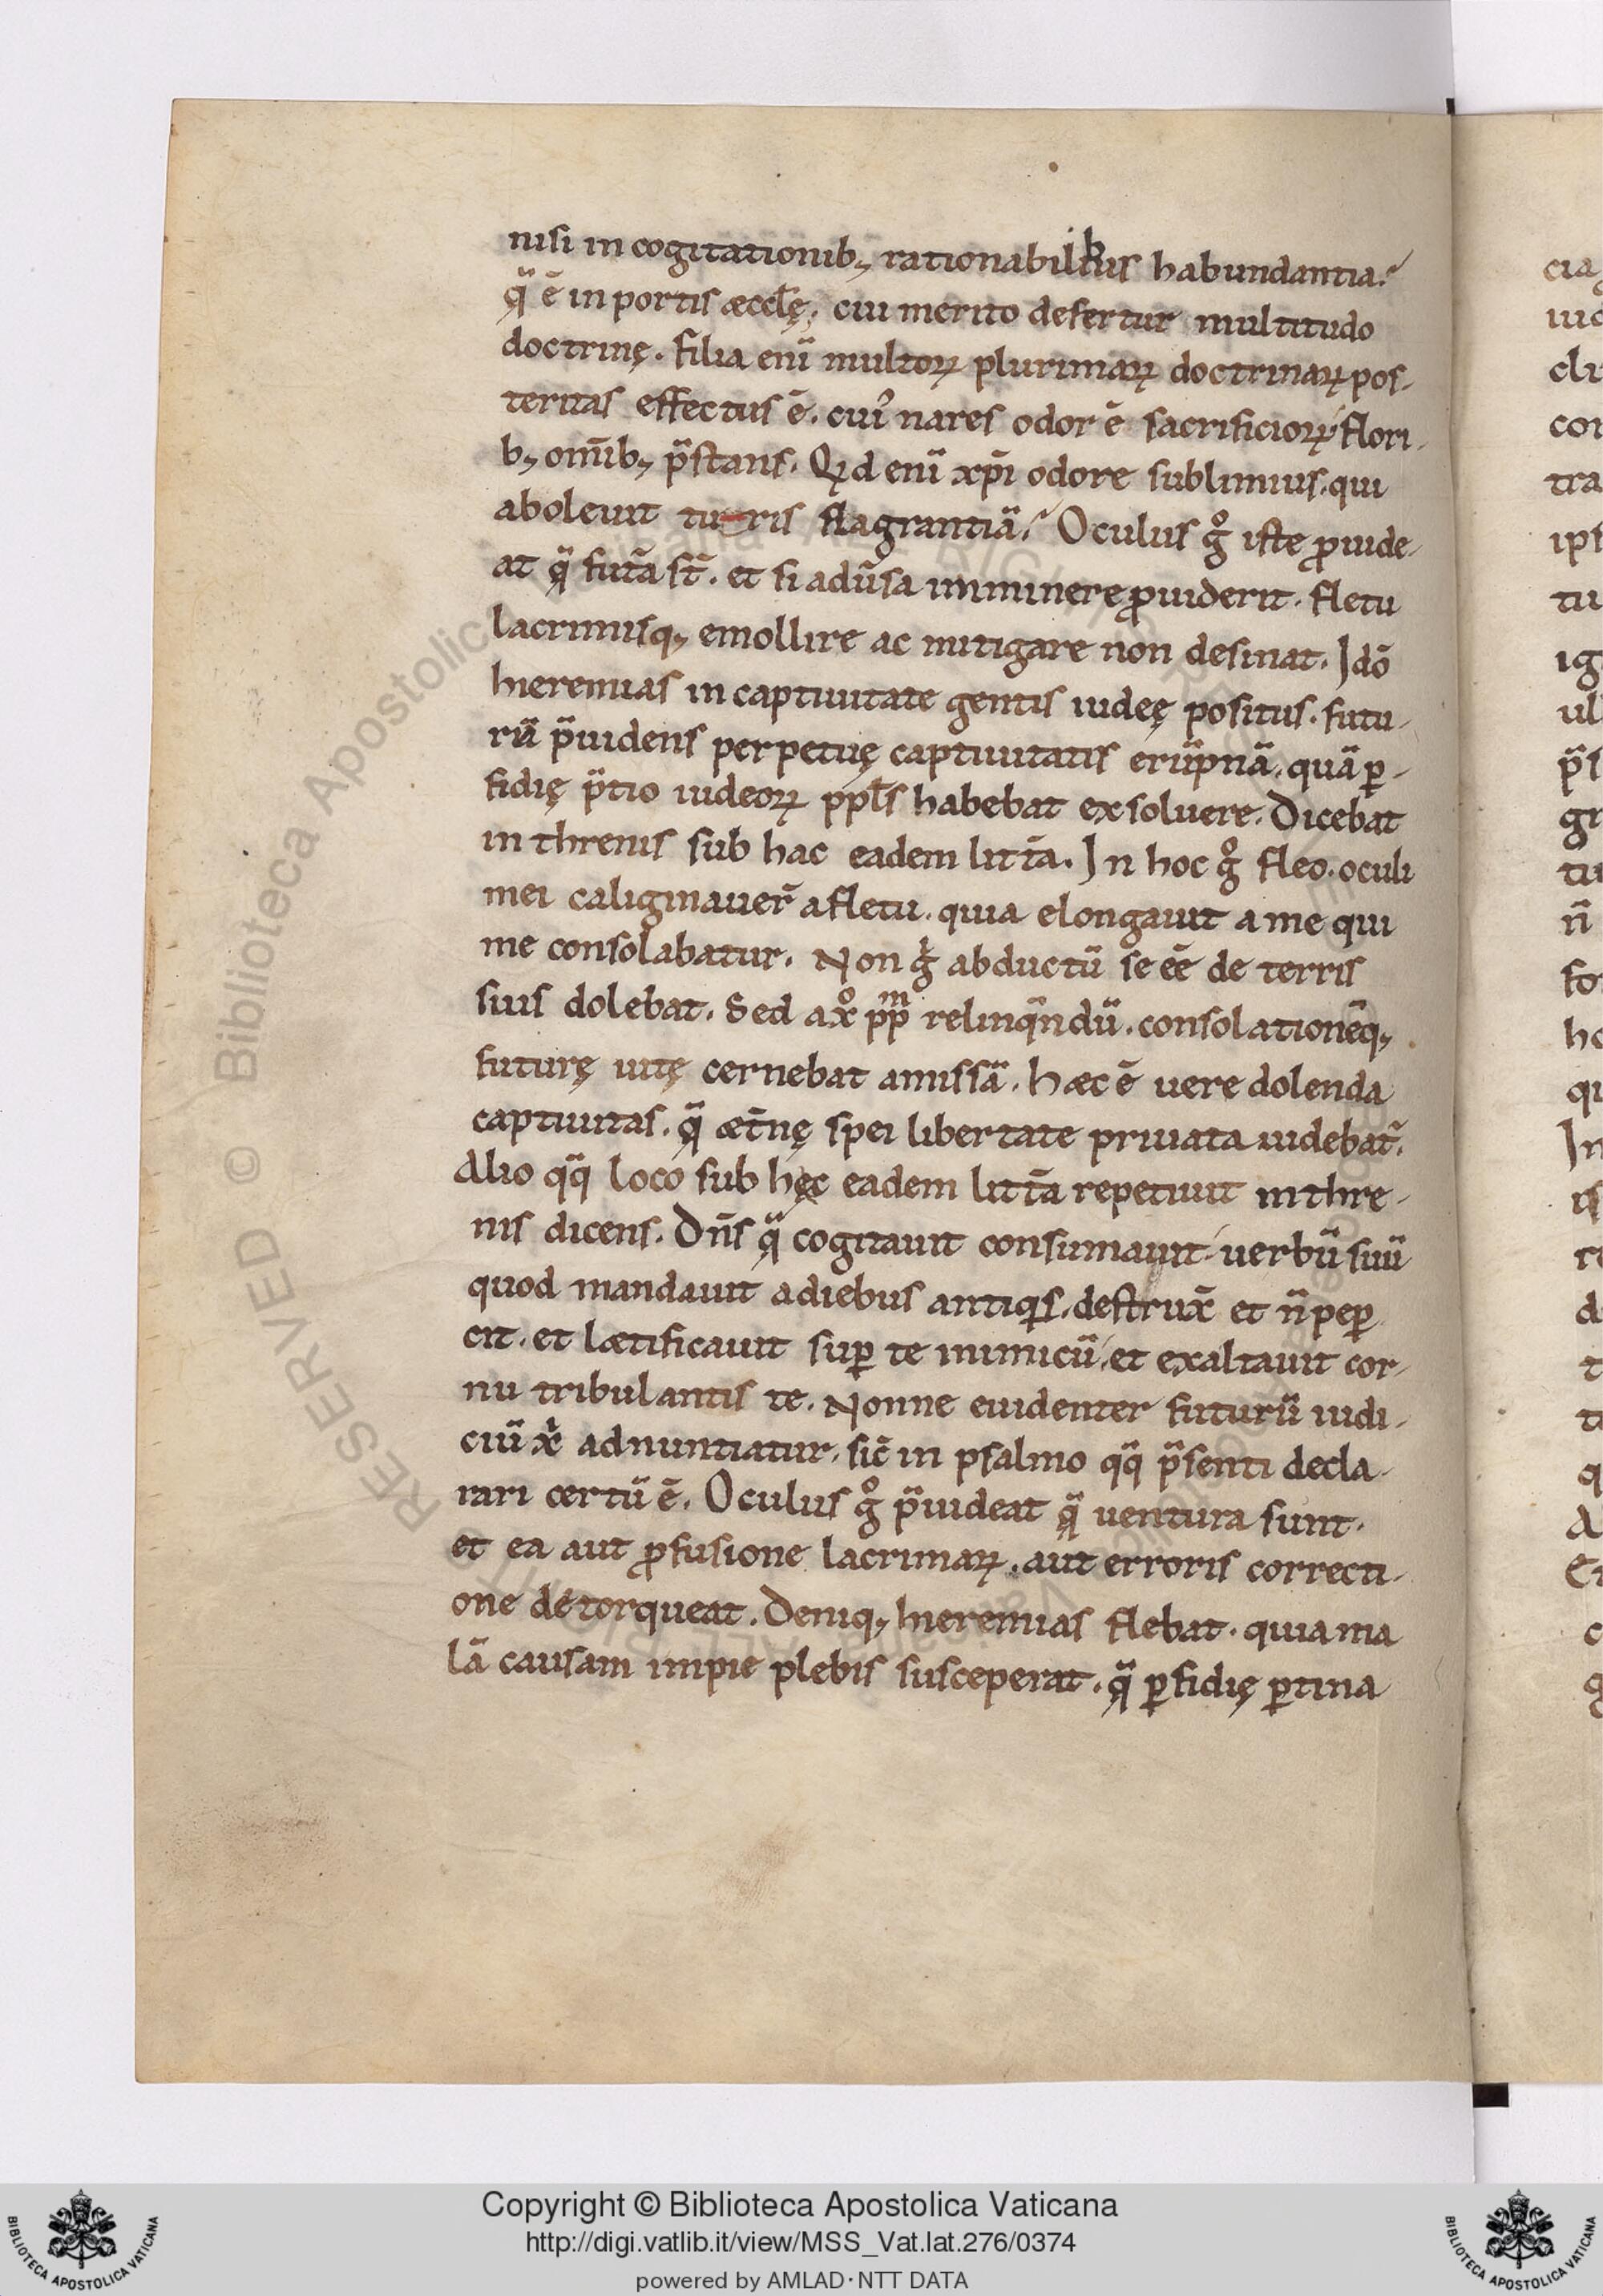 nisi in cogitationib; rationabilibus habundantia?
q̄ ē in portis æccłę; cui merito defertur multitudo
doctrinę. Filia enī multoꝝ plurimaꝝ doctrinaꝝ pos-
teritas effectus ē. cuiꝰ nares odor ē sacrificioꝝ flori-
b; om̄ib; p̄stans. Qd enī xp̄i odore sublimius. qui
aboleuit turis flagrantiā? Oculus gͦ iste ꝓuide-
at q̄ fut̄a st̄. et si adūsa imminere ꝓuiderit. fletu
lacrimisq; emollire ac mitigare non desinat. Idō
hieremias in captiuitate gentis iudeę positus. futu-
rā p̄uidens perpetuę captiuitatis erūpnā. quā ꝑ-
fidię p̄tio iudeoꝝ ppłs habebat exsoluere. Dicebat
in threnis sub hac eadem litt̄a. In hoc gͦ fleo. oculi
mei caliginauer̄ a fletu. quia elongauit a me qui
me consolabatur. Non gͥ abductū se eē de terris
suis dolebat. Sed a xͦ ppᵐ relinq̄ndū. consolationēq;
futurę uitę cernebat amissā. hæc ē uere dolenda
captiuitas. q̄ æt̄nę spei libertate priuata uidebat᷑.
Alio qq̄ loco sub hęc eadem litt̄a repetiuit in thre-
nis dicens. Dn̄s q̄ cogitauit consumauit. uerbū suū
quod mandauit a diebus antiqͥs. destrux̄ et n̄ peꝑ
cit. et lætificauit suꝑ te inimicū. et exaltauit cor-
nu tribulantis te. Nonne euidenter futurū iudi-
ciū xͥ adnuntiatur. sic̄ in psalmo qq̄ p̄senti decla-
rari certū ē. Oculus gͦ p̄uideat q̄ uentura sunt.
et ea aut ꝓfusione lacrimaꝝ. aut erroris correcti-
one detorqueat. Deniq; hieremias flebat. quia ma
lā causam impie plebis susceperat. q̄ ꝑfidię ꝑtina
Copyright © Biblioteca Apostolica Vaticana
http://digi.vatlib.it/view/MSS_Vat.lat.276/0374
powered by AMLAD·NTT DATA
BIBLIOTECA APOSTOLICA VATICANA
BIBLIOTECA APOSTOLICA VATICANA